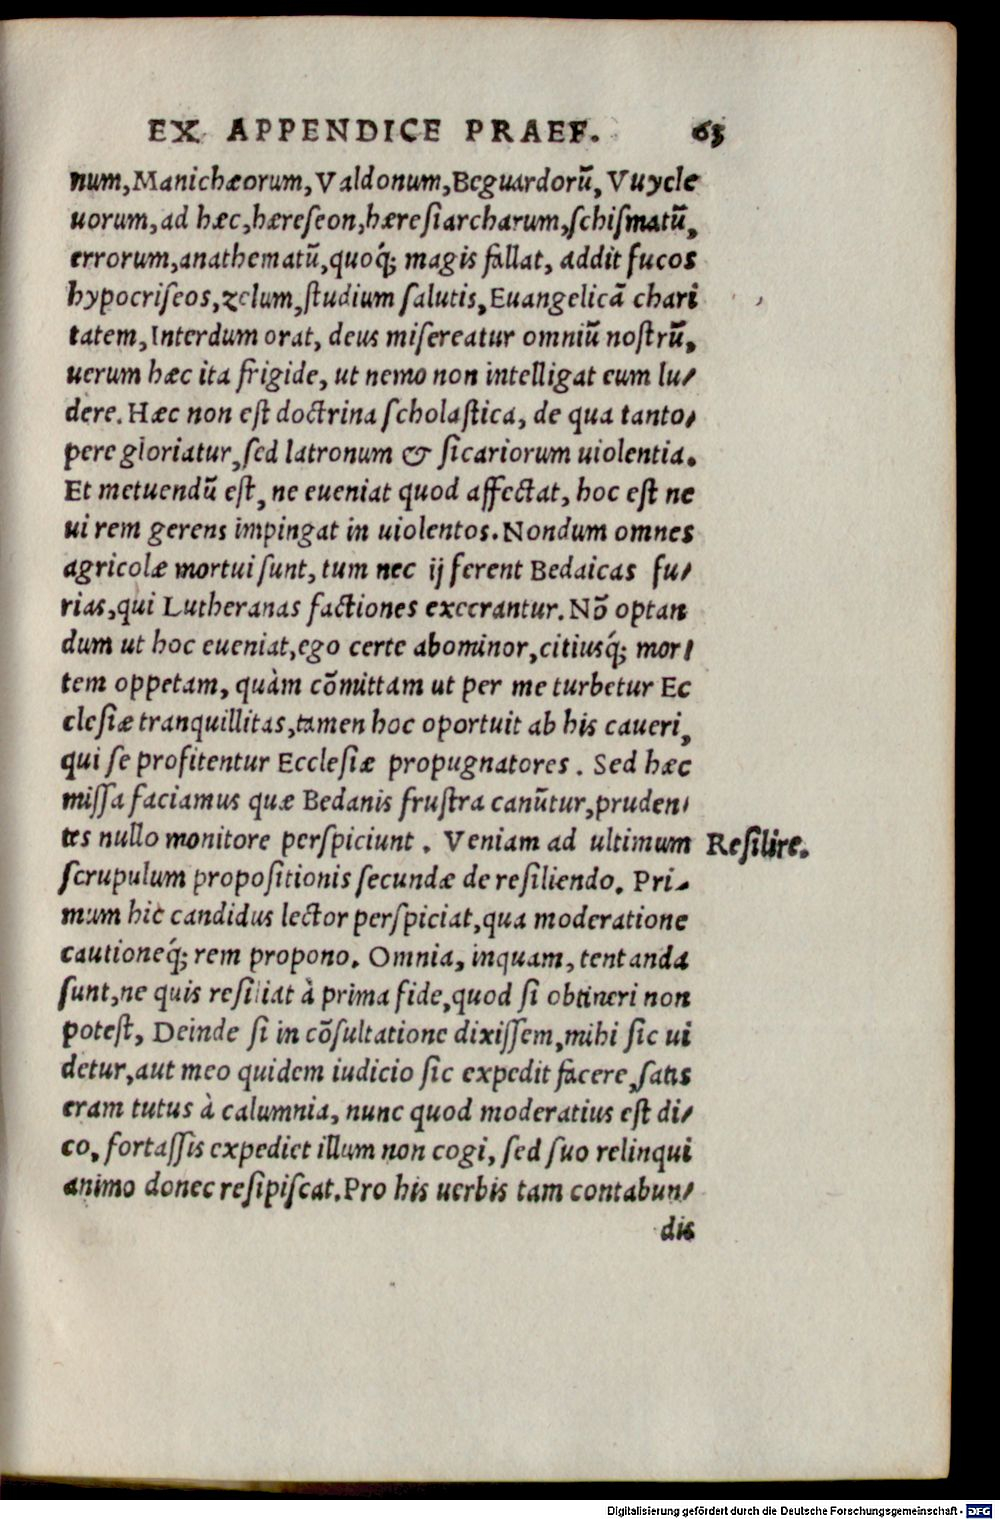 EX APPENDICE PRAEF. 65
num, Manichæorum, Valdonum, Beguardorũ, Vuycle
uorum, ad hæc, hæreseon, hæresiarcharum, schismatũ,
errorum, anathematũ, quoq́; magis fallat, addit fucos
hypocriseos, zelum, studium salutis, Euangelicã chari
tatem, Interdum orat, deus misereatur omniũ nostrũ,
uerum hæc ita frigide, ut nemo non intelligat eum lu-
dere. Hæc non est doctrina scholastica, de qua tanto-
pere gloriatur, sed latronum & sicariorum uiolentia.
Et metuendũ est, ne eueniat quod affectat, hoc est ne
ui rem gerens impingat in uiolentos. Nondum omnes
agricolæ mortui sunt, tum nec ij ferent Bedaicas fu-
rias, qui Lutheranas factiones execrantur. Nõ optan
dum ut hoc eueniat, ego certe abominor, citiusq́; mor-
tem oppetam, quàm cõmittam ut per me turbetur Ec
clesiæ tranquillitas, tamen hoc oportuit ab his caueri,
qui se profitentur Ecclesiæ propugnatores. Sed hæc
missa faciamus quæ Bedanis frustra canũtur, pruden-
tes nullo monitore perspiciunt. Veniam ad ultimum
Resilire.
scrupulum propositionis secundæ de resiliendo. Pri-
mum hic candidus lector perspiciat, qua moderatione
cautioneq́; rem propono. Omnia, inquam, tentanda
sunt, ne quis resiliat à prima fide, quod si obtineri non
potest, Deinde si in cõsultatione dixissem, mihi sic ui
detur, aut meo quidem iudicio sic expedit facere, satis
eram tutus à calumnia, nunc quod moderatius est di-
co, fortassis expediet illum non cogi, sed suo relinqui
animo donec resipiscat. Pro his uerbis tam contabun-
dis
Digitalisierung gefördert durch die Deutsche Forschungsgemeinschaft - DFG